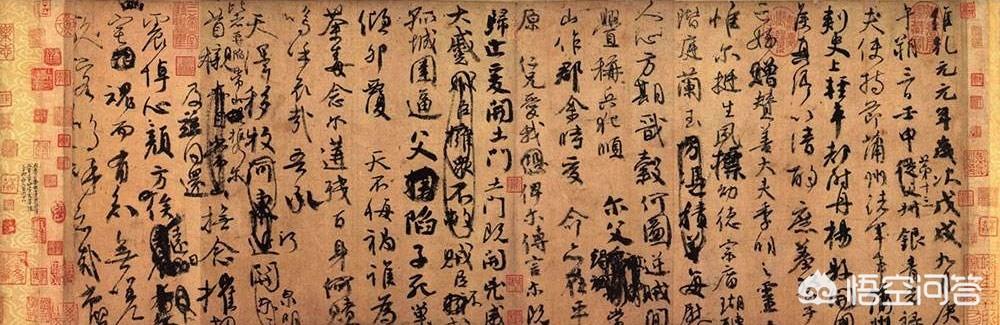 維乾元元年歲次戊戌九月庚
午朔三日壬申第十三叔銀青光祿
夫使持節蒲州諸軍事
刺史上輕車都尉丹楊縣開國
侯真卿以清酌庶羞祭于
亡姪贈贊善大夫季明之靈
惟爾挺生夙標幼德宗廟瑚璉
階庭蘭玉每慰
人心方期戩穀何圖逆賊間
釁稱兵犯順爾父竭誠常
山作郡余時受命亦在平
原仁兄愛我俾爾傳言爾既
歸止爰開土門土門既開凶威
大蹙賊臣不救
孤城圍逼父陷子死巢
傾卵覆天不悔禍誰為
荼毒念爾遘殘百身何贖
嗚呼哀哉吾承
天澤移牧河關泉明
比者再陷常山攜爾
首櫬及茲同還撫念摧
震悼心顏方俟遠日
宅魂而有知無嗟
久客嗚呼哀哉尚
悟空问答